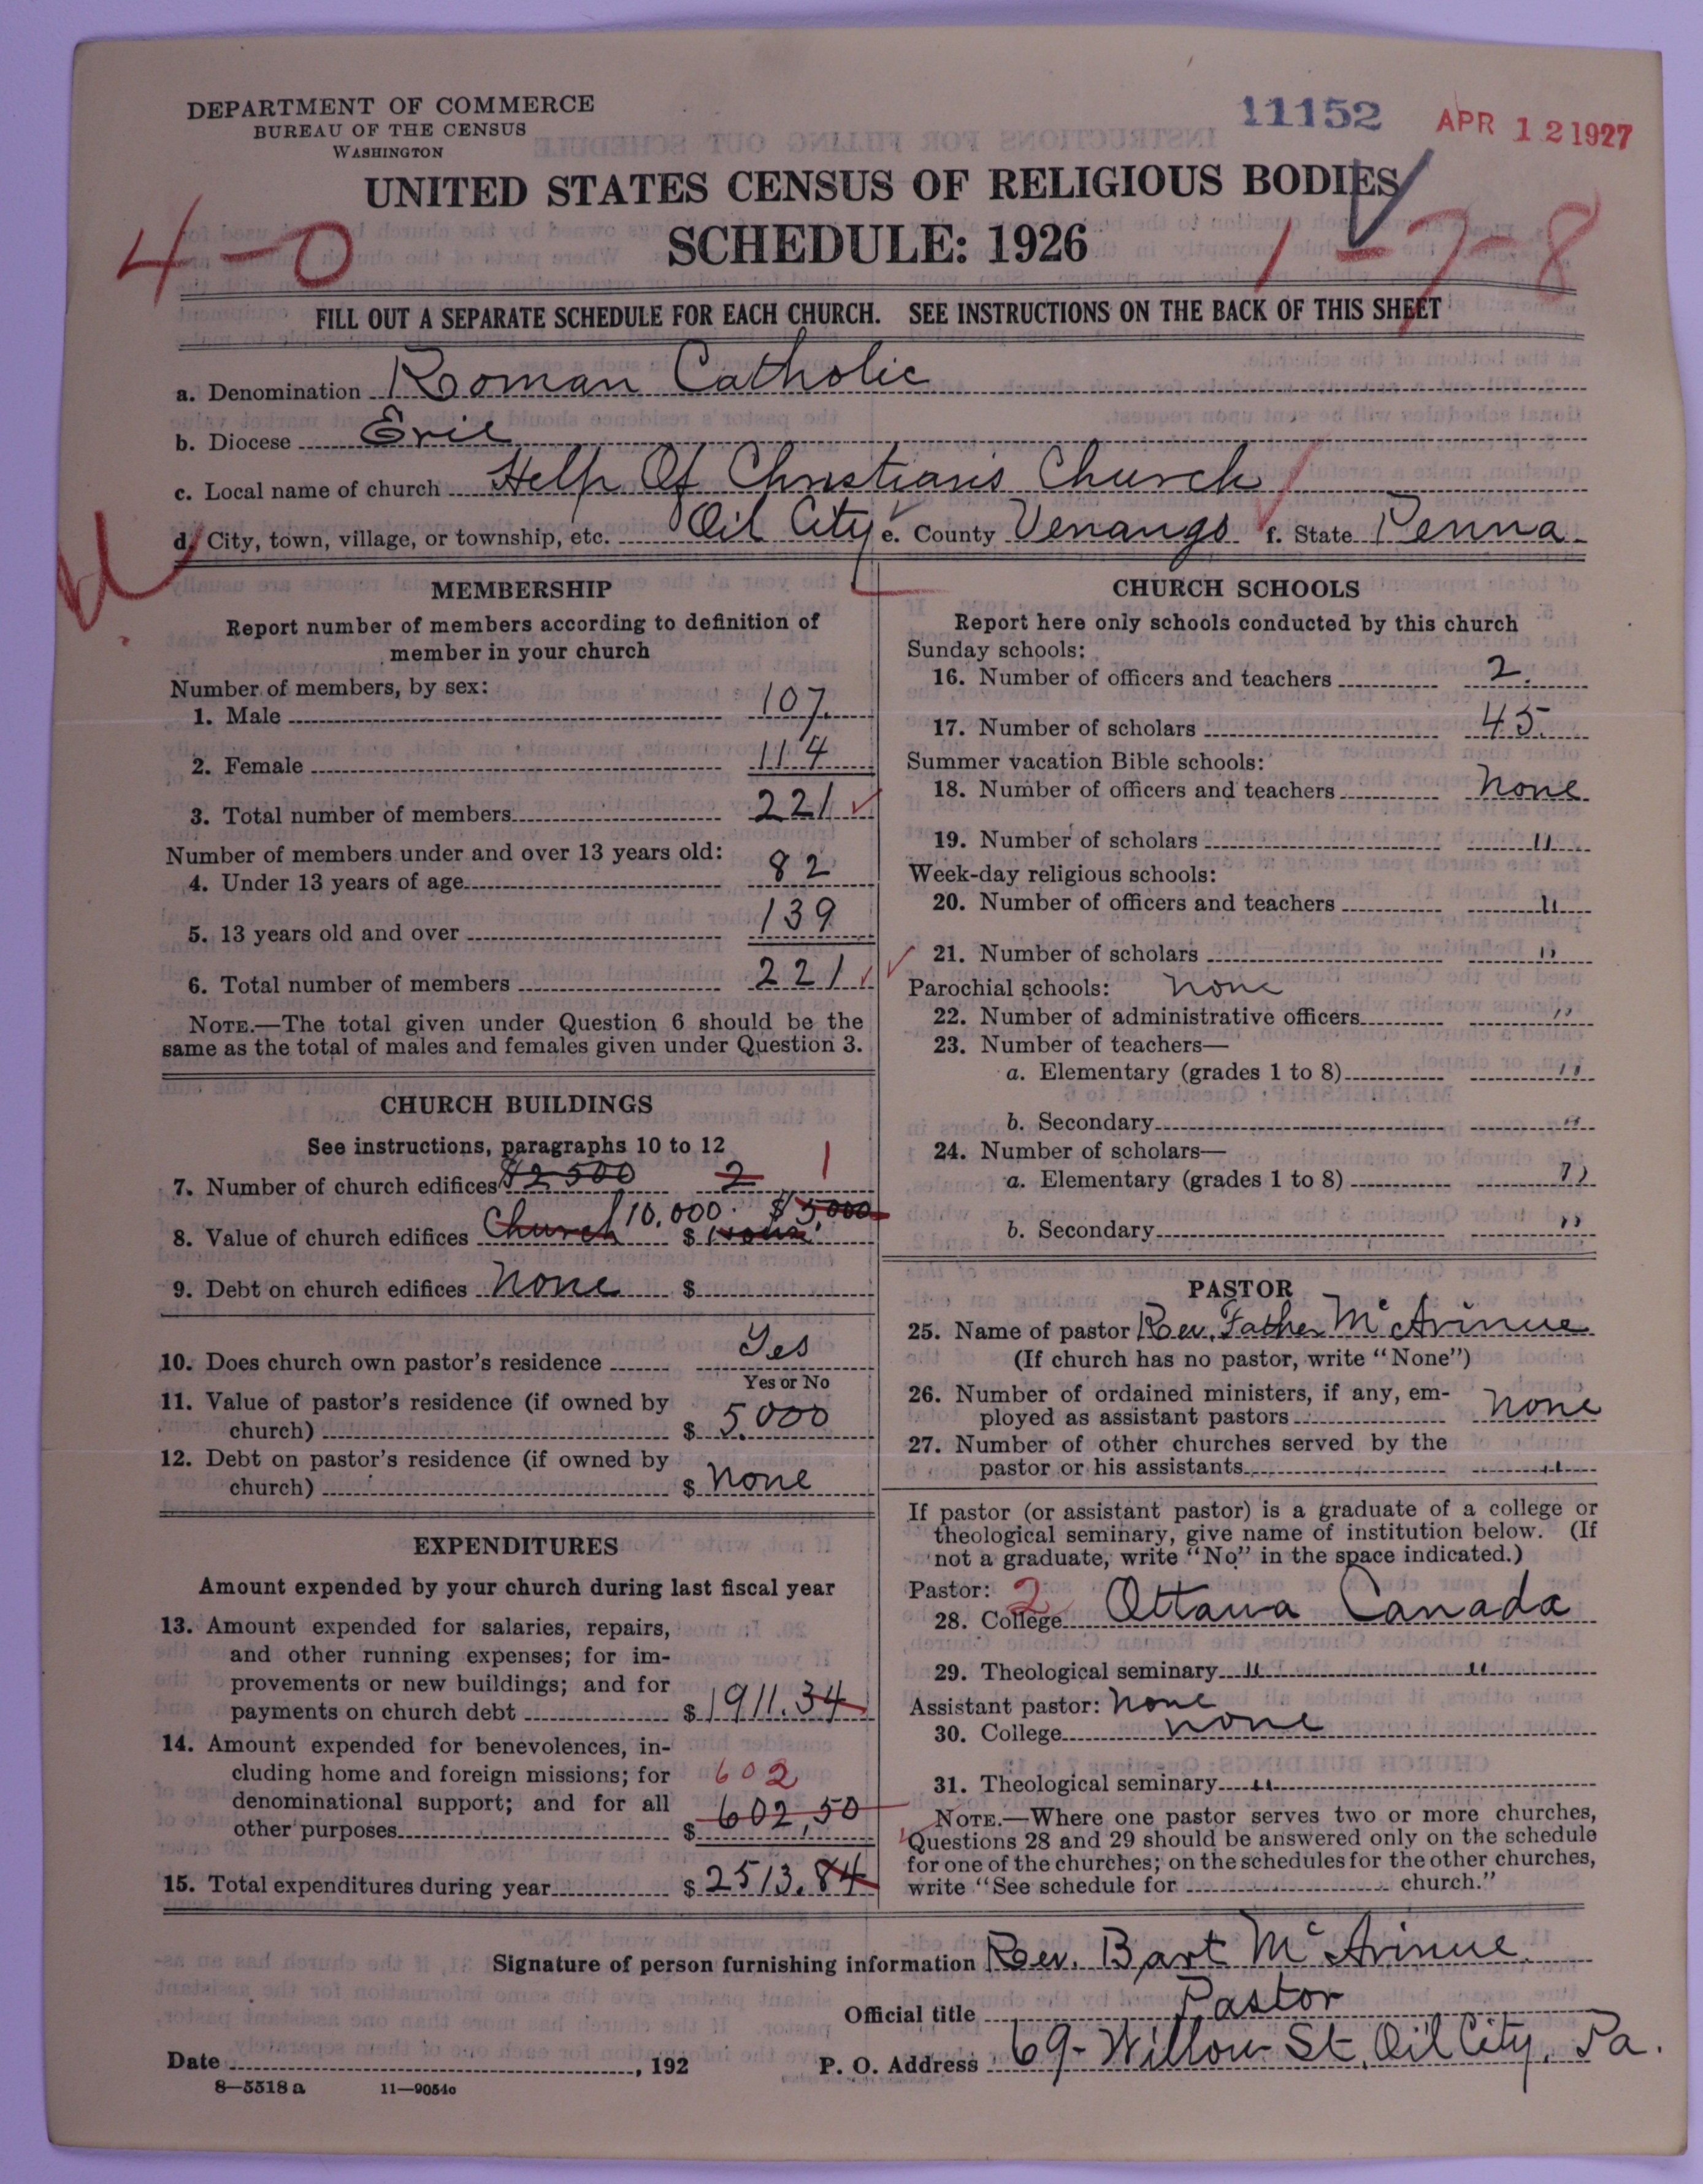 DEPARTMENT OF COMMERCE
BUREAU OF THE CENSUS
WASHINGTON
11152
APR 12 1927
UNITED STATES CENSUS OF RELIGIOUS BODIES
4-0
SCHEDULE: 1926
1-7-8
FILL OUT A SEPARATE SCHEDULE FOR EACH CHURCH. SEE INSTRUCTIONS ON THE BACK OF THIS SHEET
a. Denomination Roman Catholic
b. Diocese Erie
c. Local name of church Help Of Christians Church
d. City, town, village, or township, etc. Oil City e. County Venango f. State Penna
MEMBERSHIP
Report number of members according to definition of
member in your church
Number of members, by sex:
1. Male 107.
2. Female 114
3. Total number of members 221
Number of members under and over 13 years old:
4. Under 13 years of age 82
5. 13 years old and over 139
6. Total number of members 221
NOTE.—The total given under Question 6 should be the
same as the total of males and females given under Question 3.
CHURCH BUILDINGS
See instructions, paragraphs 10 to 12
7. Number of church edifices $2500 2 1
8. Value of church edifices Church 10,000. $ 5,000
$
9. Debt on church edifices None $
10. Does church own pastor's residence Yes
Yes or No
11. Value of pastor's residence (if owned by
church) $ 5,000
12. Debt on pastor's residence (if owned by
church) $ None
EXPENDITURES
Amount expended by your church during last fiscal year
13. Amount expended for salaries, repairs,
and other running expenses; for im-
provements or new buildings; and for
payments on church debt $ 1911.34
14. Amount expended for benevolences, in-
cluding home and foreign missions; for 602
denominational support; and for all
other purposes $ 602,50
15. Total expenditures during year $ 2513.84
CHURCH SCHOOLS
Report here only schools conducted by this church
Sunday schools:
16. Number of officers and teachers 2.
17. Number of scholars 45.
Summer vacation Bible schools:
18. Number of officers and teachers None
19. Number of scholars "
Week-day religious schools:
20. Number of officers and teachers "
21. Number of scholars "
Parochial schools: None
22. Number of administrative officers "
23. Number of teachers—
a. Elementary (grades 1 to 8) "
b. Secondary "
24. Number of scholars—
a. Elementary (grades 1 to 8) "
b. Secondary "
PASTOR
25. Name of pastor Rev. Father McAvinue
(If church has no pastor, write "None")
26. Number of ordained ministers, if any, em-
ployed as assistant pastors None
27. Number of other churches served by the
pastor or his assistants "
If pastor (or assistant pastor) is a graduate of a college or
theological seminary, give name of institution below. (If
not a graduate, write "No" in the space indicated.)
Pastor: 2
28. College Ottawa Canada
29. Theological seminary " "
Assistant pastor: None
30. College none
31. Theological seminary "
NOTE.—Where one pastor serves two or more churches,
Questions 28 and 29 should be answered only on the schedule
for one of the churches; on the schedules for the other churches,
write "See schedule for church."
Signature of person furnishing information Rev. Bart McAvinue
Official title Pastor
Date , 192
P. O. Address 69- Willow St, Oil City, Pa.
8—5518 a 11—9054c